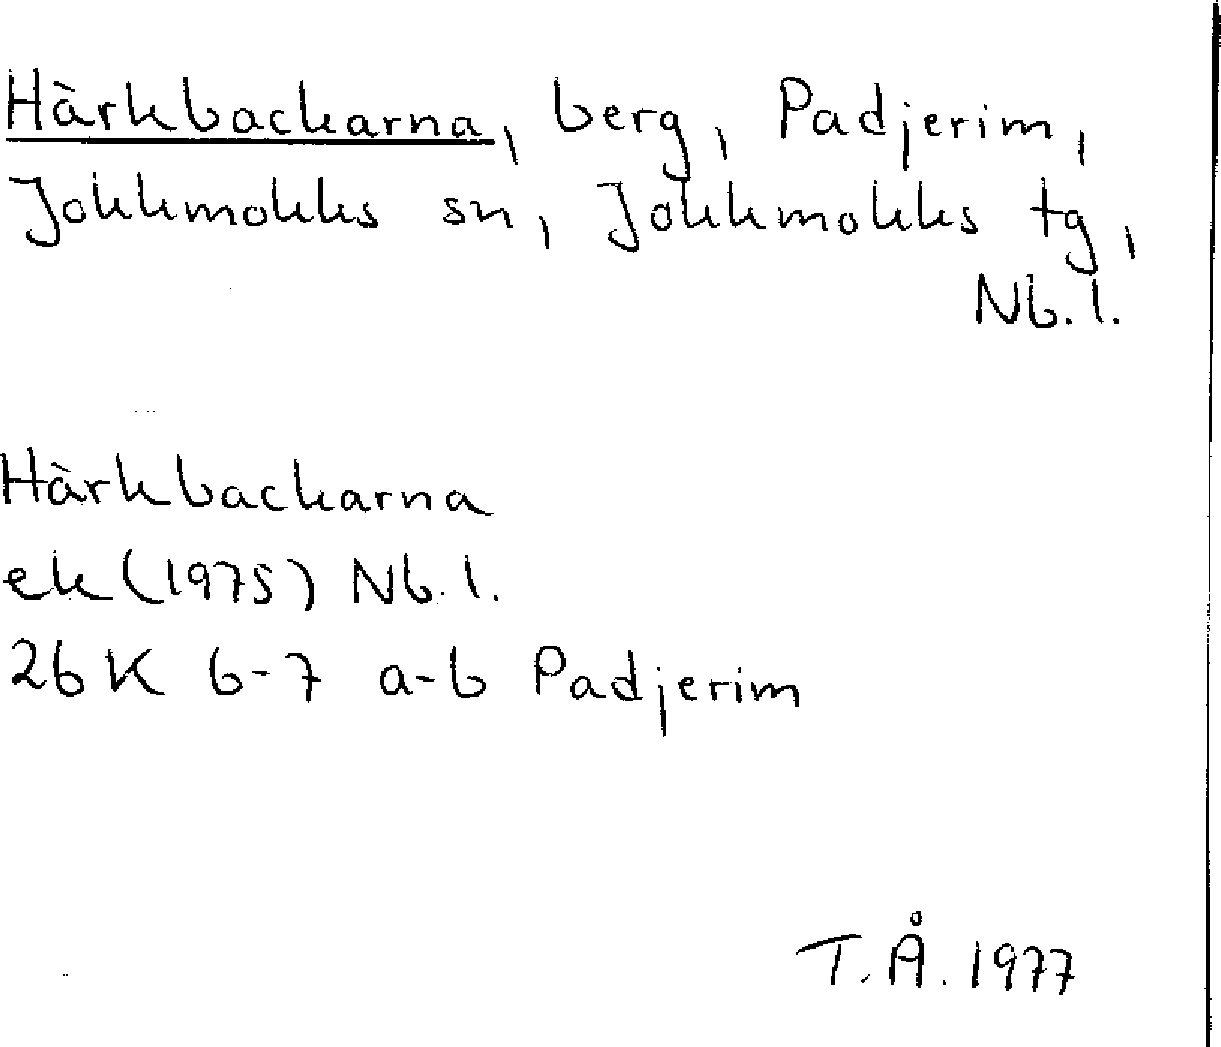 Härkbackarna, berg, Padjerim,
Jokkmokks sn, Jokkmokks tg,
Nb. l.
Härkbackarna
ek (1975) Nb. l.
26 K 6-7 a-b Padjerim
T. Å. 1977